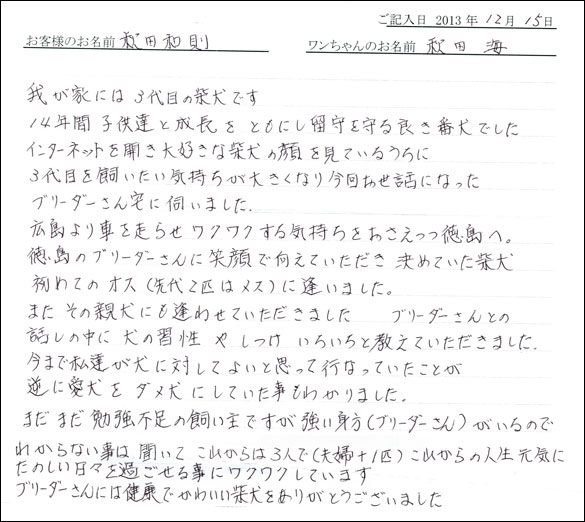 ご記入日 2013年12月15日
お客様のお名前 秋田和則 ワンちゃんのお名前 秋田 海
我が家には3代目の柴犬です
14年間子供達と成長をともにし留守を守る良き番犬でした
インターネットを開き大好きな柴犬の顔を見ているうちに
3代目を飼いたい気持ちが大きくなり今回お世話になった
ブリーダーさん宅に伺いました.
広島より車を走らせワクワクする気持ちをおさえつつ徳島へ。
徳島のブリーダーさんに笑顔で向えていただき 決めていた柴犬
初めてのオス(先代2匹はメス)に逢いました。
また その親犬にも逢わせていただきました ブリーダーさんとの
話しの中に 犬の習性 や しつけ いろいろと教えていただきました.
今まで私達が犬に対してよいと思って行なっていたことが
逆に愛犬を ダメ犬 にしていた事もわかりました.
まだまだ勉強不足の飼い主ですが強い身方(ブリーダーさん)がいるので
わからない事は 聞いて これからは3人で(夫婦+1匹)これからの人生元気に
たのしい日々を過ごせる事にワクワクしています
ブリーダーさんには健康でかわいい柴犬をありがとうございました